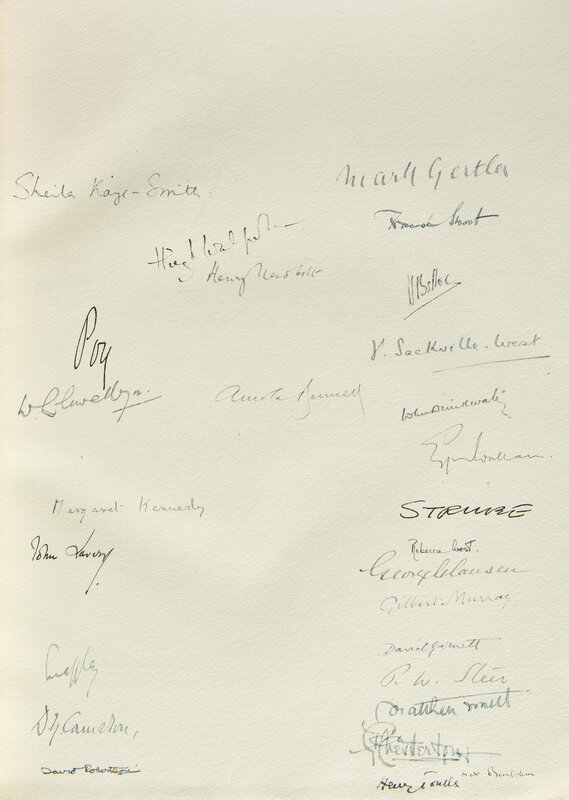 Sheila Kaye-Smith.
Mark Gertler
Hugh Walpole
Henry Newbolt
H Belloc
Poy
V. Sackville-West
W Llewellyn
Arnold Bennett
John Drinkwater
Margaret Kennedy
STRUBE
John Lavery
Rebecca West.
George Clausen
Gilbert Murray
David Garnett
P. W. Steer
Matthew Smith
D Y Cameron,
G K Chesterton
David Robertson
Henry Tonks
Max Beerbohm